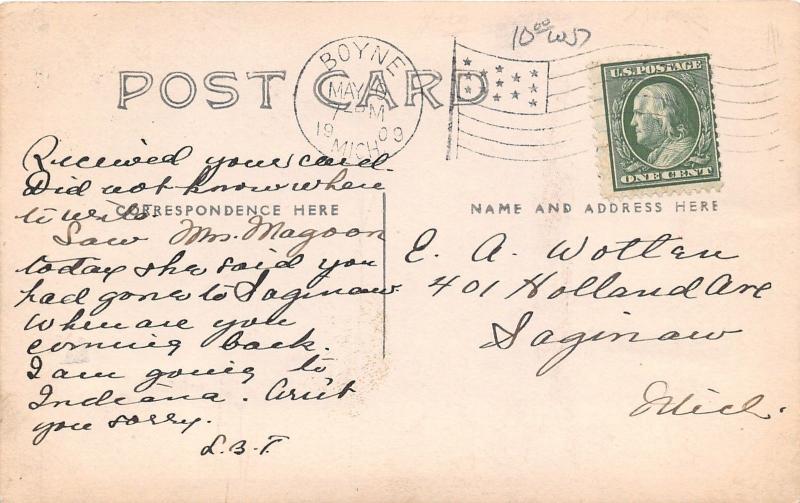 10.00
POST CARD
BOYNE
MAY
PM
1909
MICH.
U.S. POSTAGE
ONE CENT
CORRESPONDENCE HERE
NAME AND ADDRESS HERE
Received your card.
Did not know where
to write.
Saw Mrs. Magoon
today she said you
had gone to Saginaw
When are you
coming back.
I am going to
Indiana. Ain't
you sorry.
L.B.T.
E. A. Wotten
401 Holland Ave
Saginaw
Mich.